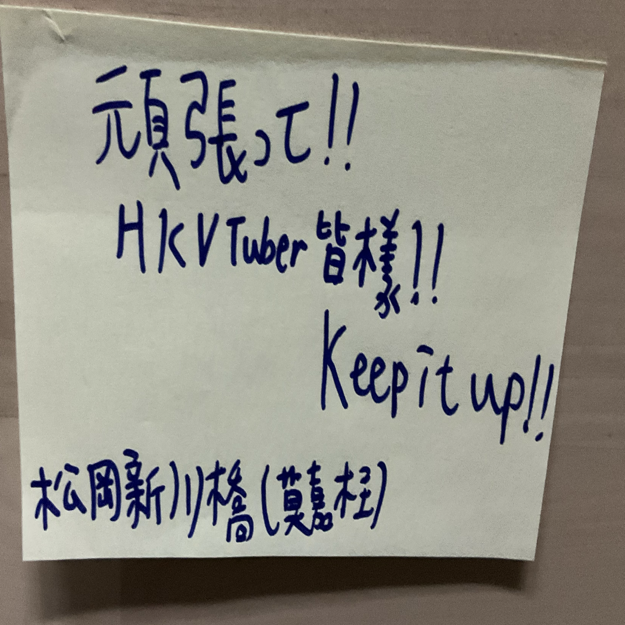 頑張って!!
HKVTuber皆様!!
Keep it up!!
松岡新川橋(黄嘉桂)